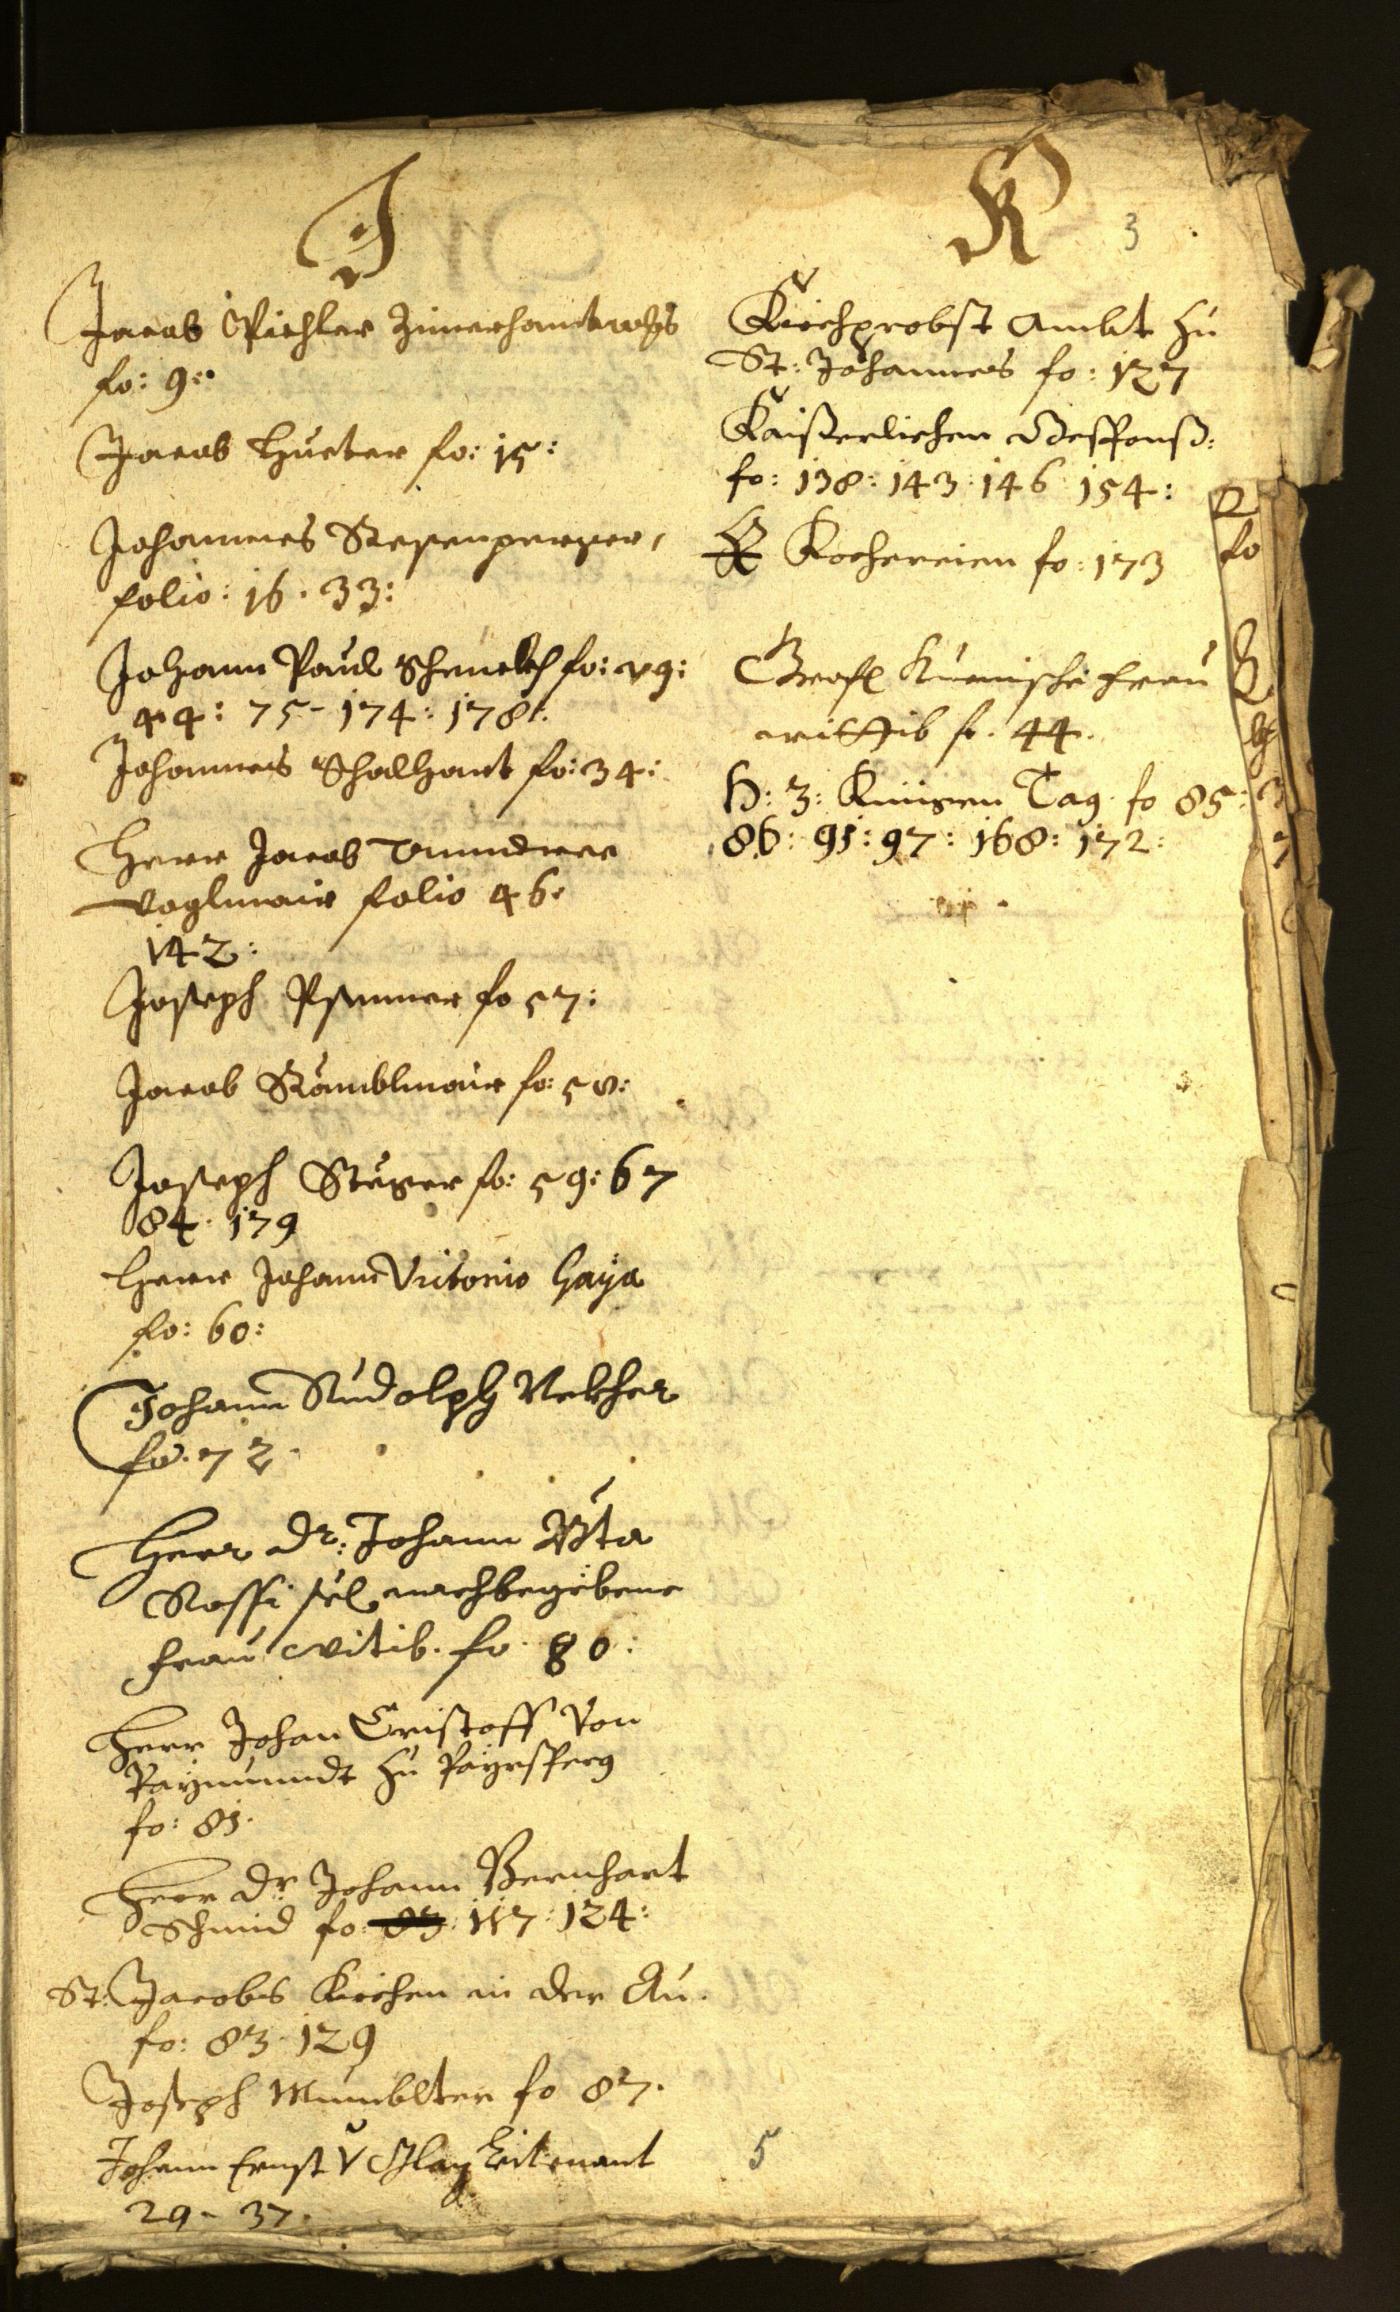 J
Jacob Pichler Zimerhandtwerchs
fo: 9:
Jacob Hueber fo: 15:
Johannes
folio: 16. 33:
Johann Paul Schenckh fo: 29:
44: 75- 174: 178:
Johannes Schalhant fo: 34:
Herr Jacob
Voglmair folio 46.
142:
Joseph fo 57:
Jacob Ramblmair fo: 58:
Joseph Steger fo: 59: 67
84. 179
Herr Johann Vitorio Gaÿa
fo: 60:
Johann Rudolph Vekher
fo. 72.
Herr Dr: Johann
Rossi sel. nachbegebene
Frau Witib. fo. 80:
Herr Johan Cristoff Von
Paymundt zu Payrsperg
fo: 81.
Herr Dr Johann Bernhart
Schmid fo: 83: 117: 124:
St: Jacobs Kirchen in der Au.
fo: 83. 129
Joseph Mumblter fo 87.
Johann Ernst V Leitenant
29- 37.
K
3
Kirchprobst Ambt zu
St: Johannes fo: 127
Kaißerlichen
fo: 138: 143: 146 154:
Kochereien fo: 173
Grafl. Kuenische Frau
Wittib fo. 44.
H: 3: Künigen Tag. fo 85:
86: 91: 97: 168: 172:
5